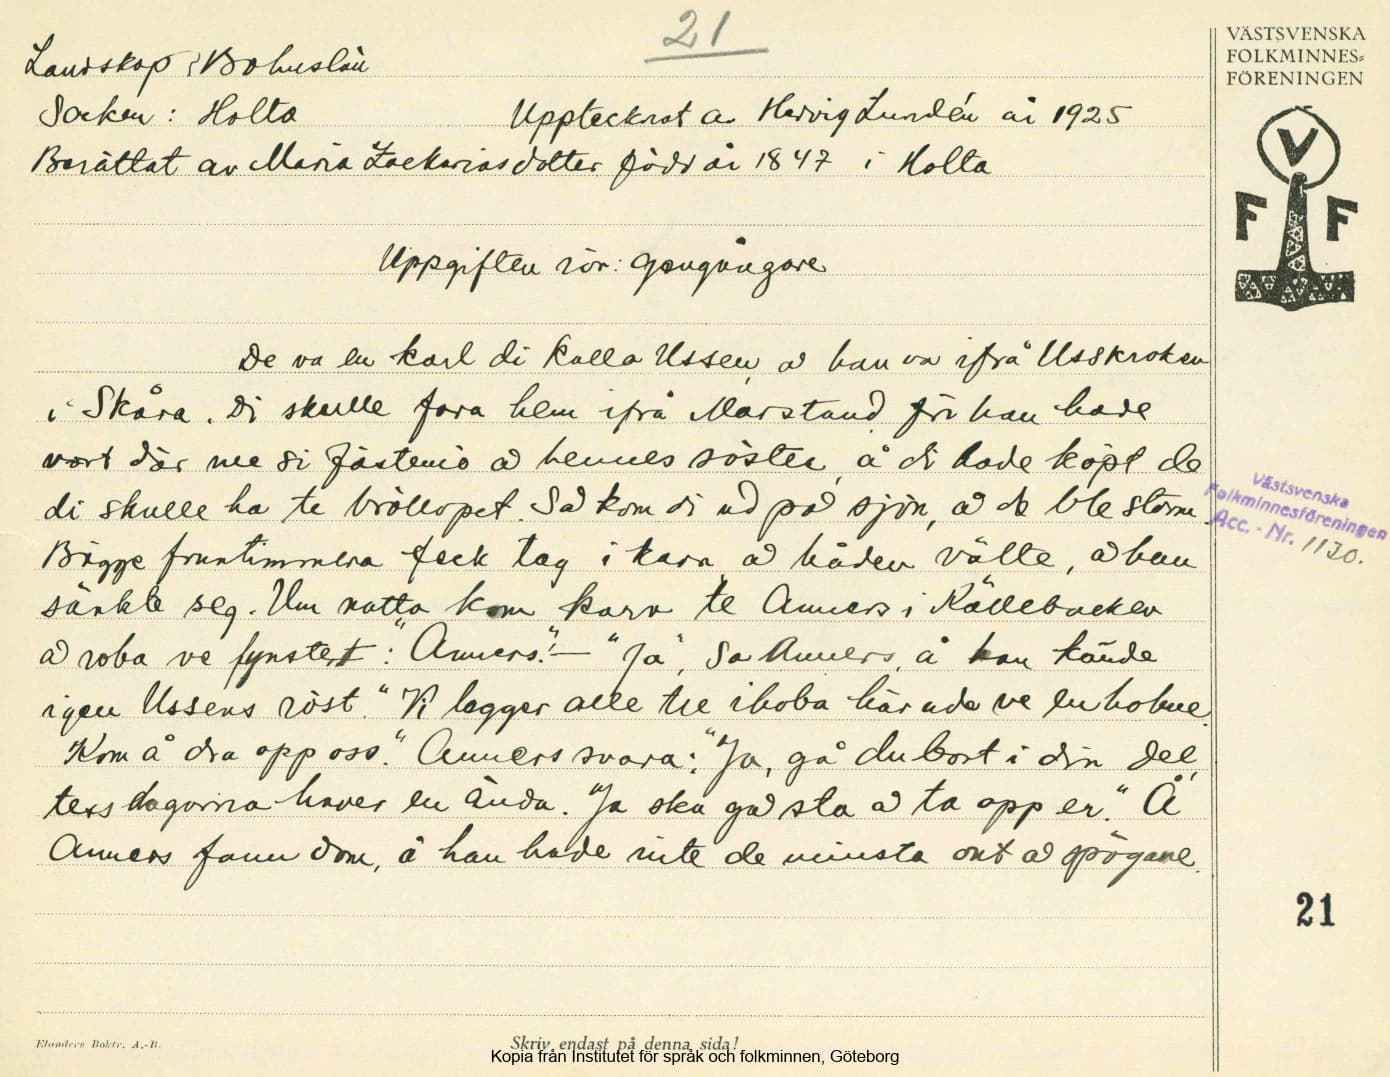 21
VÄSTSVENSKA
FOLKMINNES-
FÖRENINGEN
V
F F
Landskap: Bohuslän
Socken: Holta Upptecknat av Hervig Lundén år 1925
Berättat av Maria Zackariasdotter född år 1847 i Holta
Uppgiften rör: gengångare
De va en karl di kalla Ussen, å han va ifrå Usskroken
i Skåra. Di skulle fara hem ifrå Marstand, för han hade
vart där me si fästemö å hennes söster, å di hade köpt de
di skulle ha te bröllopet. Så kom di ud på sjön, å de ble storm.
Bägge fruntimmera feck tag i karn å båden välte, å han
sänkte seg. Um natta kom karn te Anners i Källebacken
å roba ve fynstert: "Anners!" — "Ja", sa Anners, å han kände
igen Ussens röst. "Vi legger alle tre ihoba här ude ve en holme.
Kom å dra opp oss." Anners svara: "Ja, gå du bort i din del,
ters dagarna haver en ända. "Ja ska gå sta å ta opp er." Å
Anners fann dom, å han hade inte de minsta ont å spögane.
Västsvenska
Folkminnesföreningen
Acc. - Nr. 1130.
21
Elanders Boktr. A.-B.
Skriv endast på denna sida!
Kopia från Institutet för språk och folkminnen, Göteborg